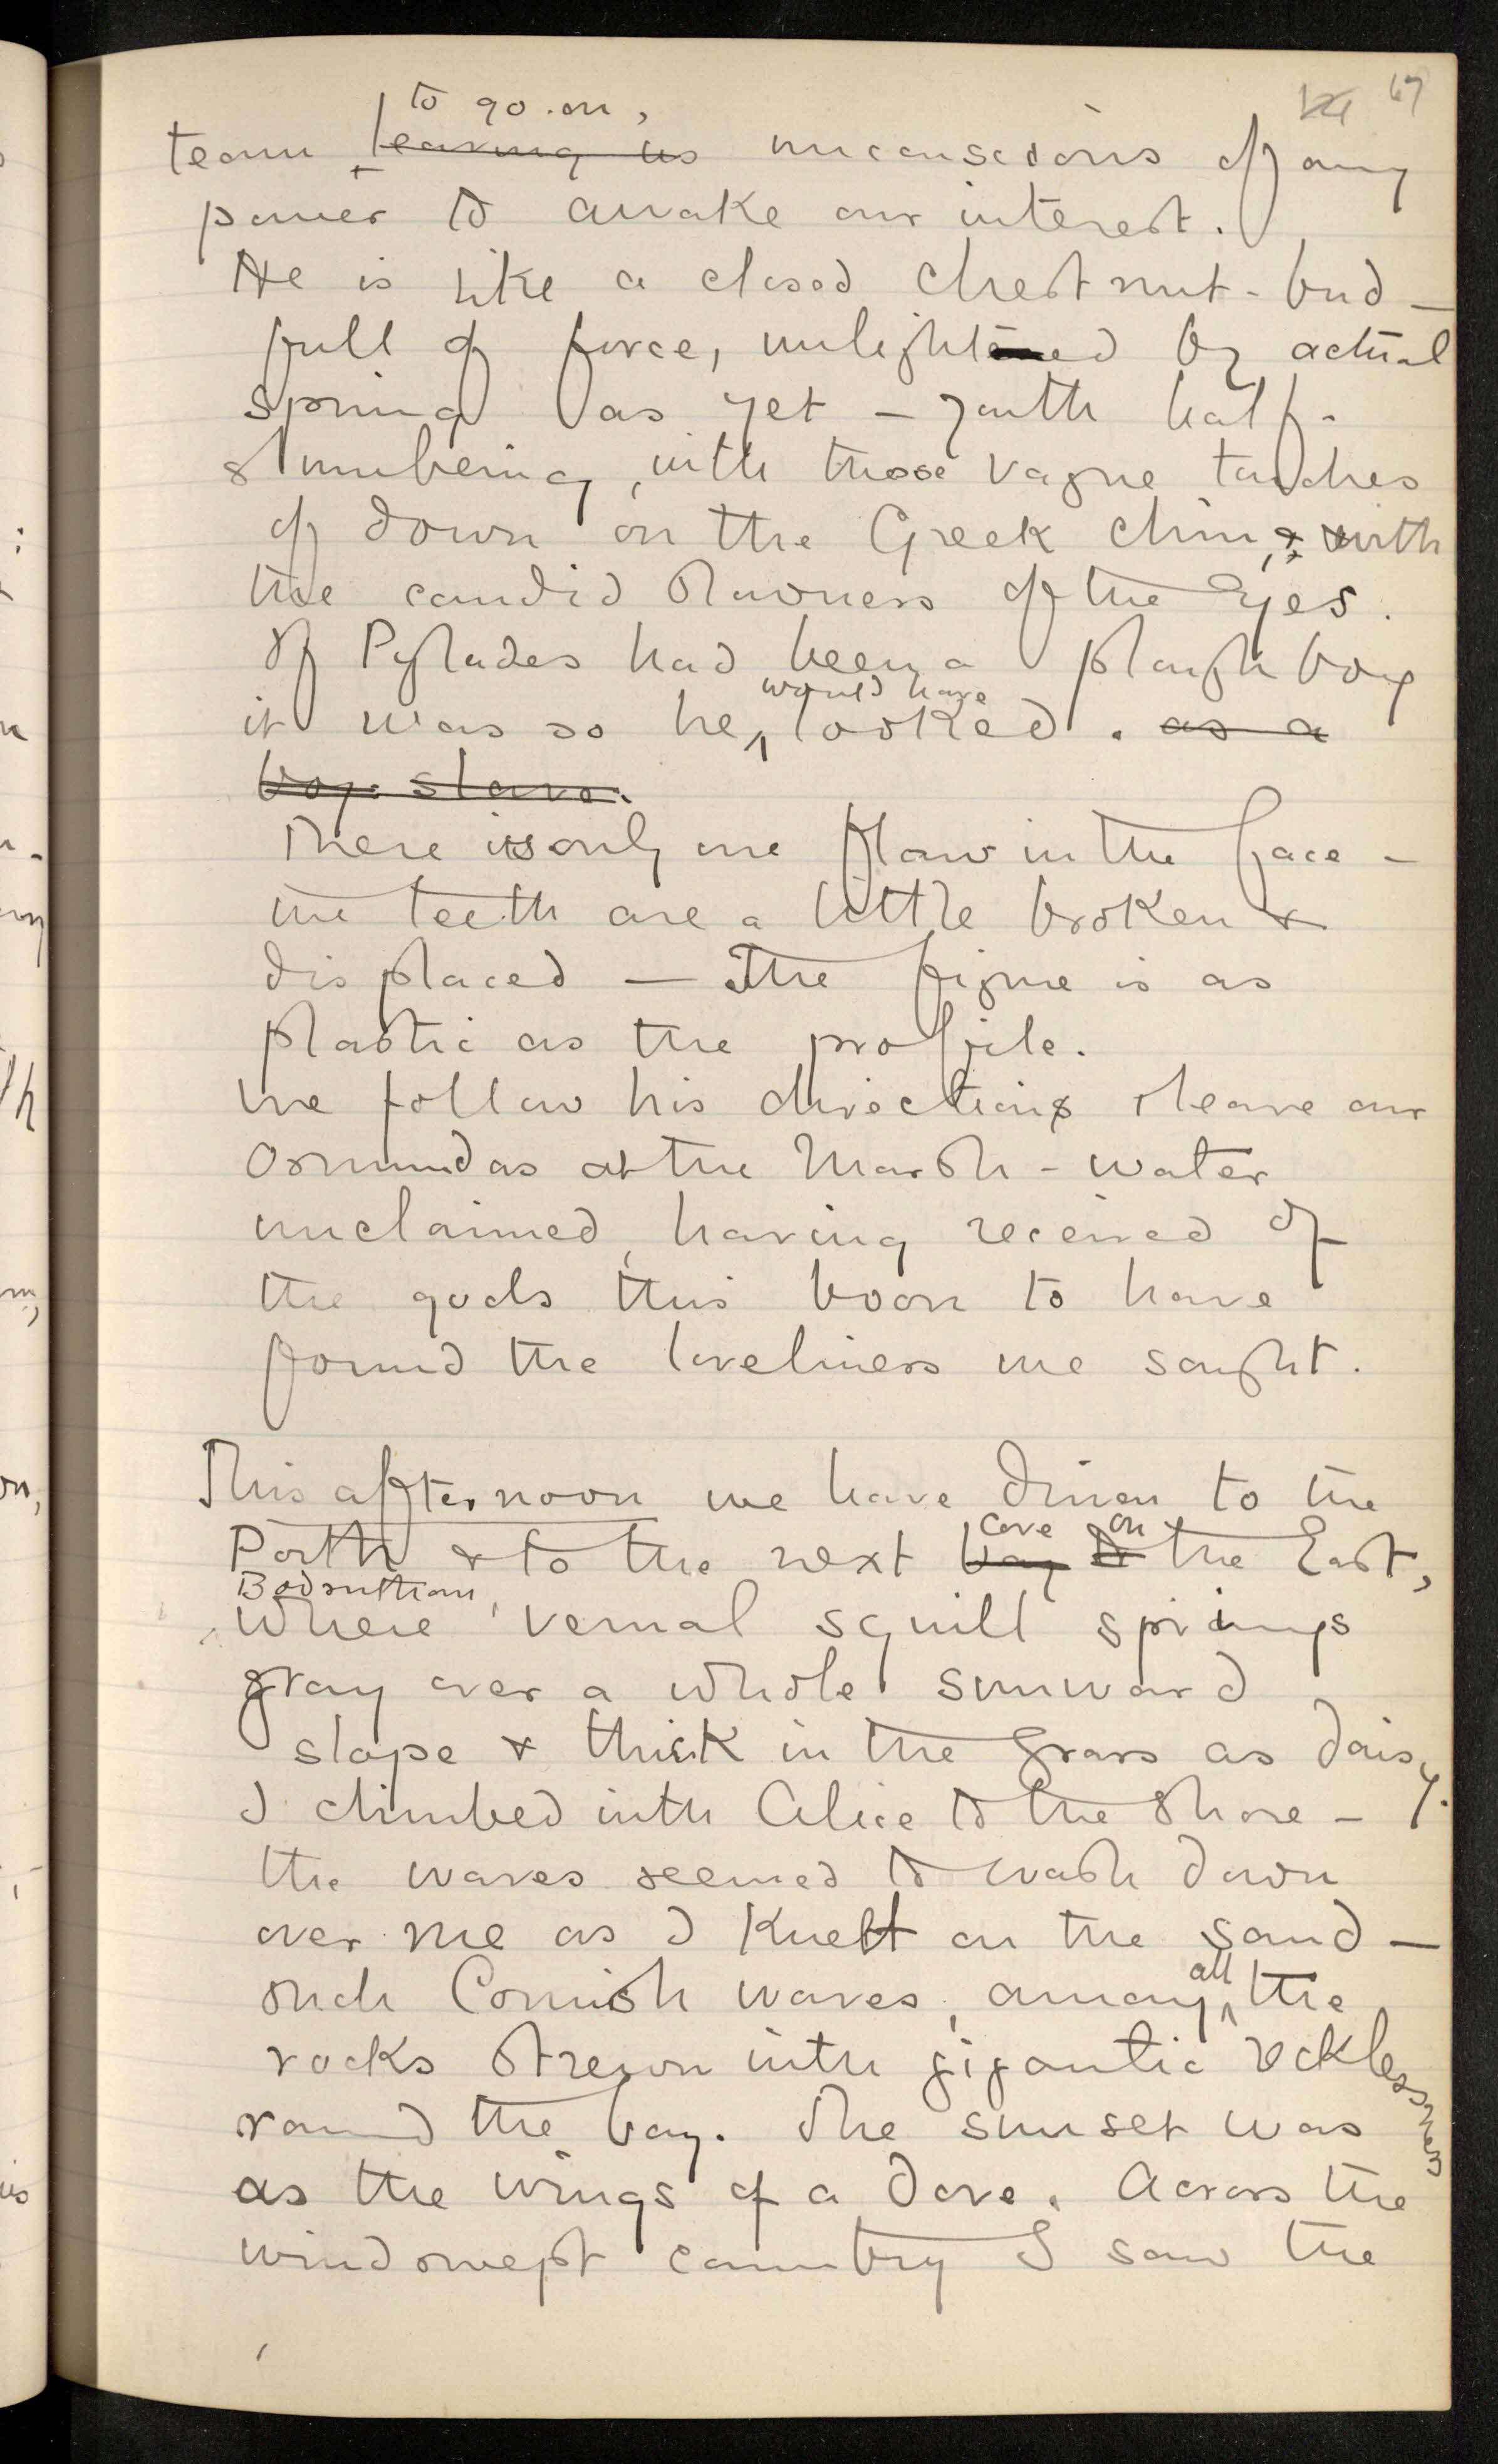 67
to go on,
team leaving us unconscious of any
power to awake our interest.
He is like a closed chestnut-bud —
full of force, unlightened by actual
spring as yet — youth half-
slumbering, with those vague touches
of down on the Greek chin, & with
the candid slowness of the eyes.
If Pylades had been a plough boy
would have
it was so he looked. as a
boy-slave.
There is only one flaw in the face —
the teeth are a little broken &
displaced — The figure is as
plastic as the profile.
We follow his directions & leave our
Osmundas at the Marsh-water
unclaimed, having received of
the gods this boon to have
found the loveliness we sought.
This afternoon we have driven to the
cove on
Porth & to the next bay to the East,
Bedruthan,
where vernal squill springs
gray over a whole sunward
slope & thick in the grass as daisy.
I climbed with Alice to the shore —
the waves seemed to wash down
over me as I knelt on the sand —
all
such Cornish waves, among the
rocks strewn with gigantic recklessness
round the bay. The sunset was
as the wings of a dove. Across the
windswept country I saw the